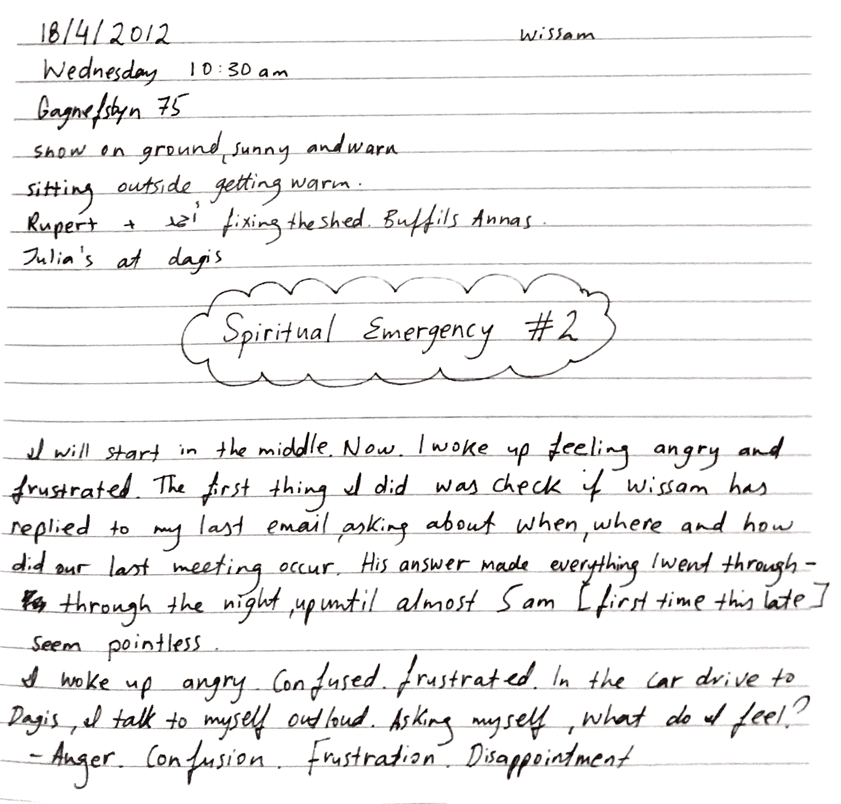 18/4/2012 Wissam
Wednesday 10:30 am
Gagnefsbyn 75
snow on ground, sunny and warm
sitting outside getting warm.
Rupert + fixing the shed. Buffils Annas.
Julia's at dagis
Spiritual Emergency #2
I will start in the middle. Now. I woke up feeling angry and
frustrated. The first thing I did was check if Wissam has
replied to my last email, asking about when, where and how
did our last meeting occur. His answer made everything I went through -
through the night, up until almost 5 am [first time this late]
seem pointless.
I woke up angry. Confused. frustrated. In the car drive to
Dagis, I talk to myself out loud. Asking myself, what do I feel?
- Anger. Confusion. Frustration. Disappointment